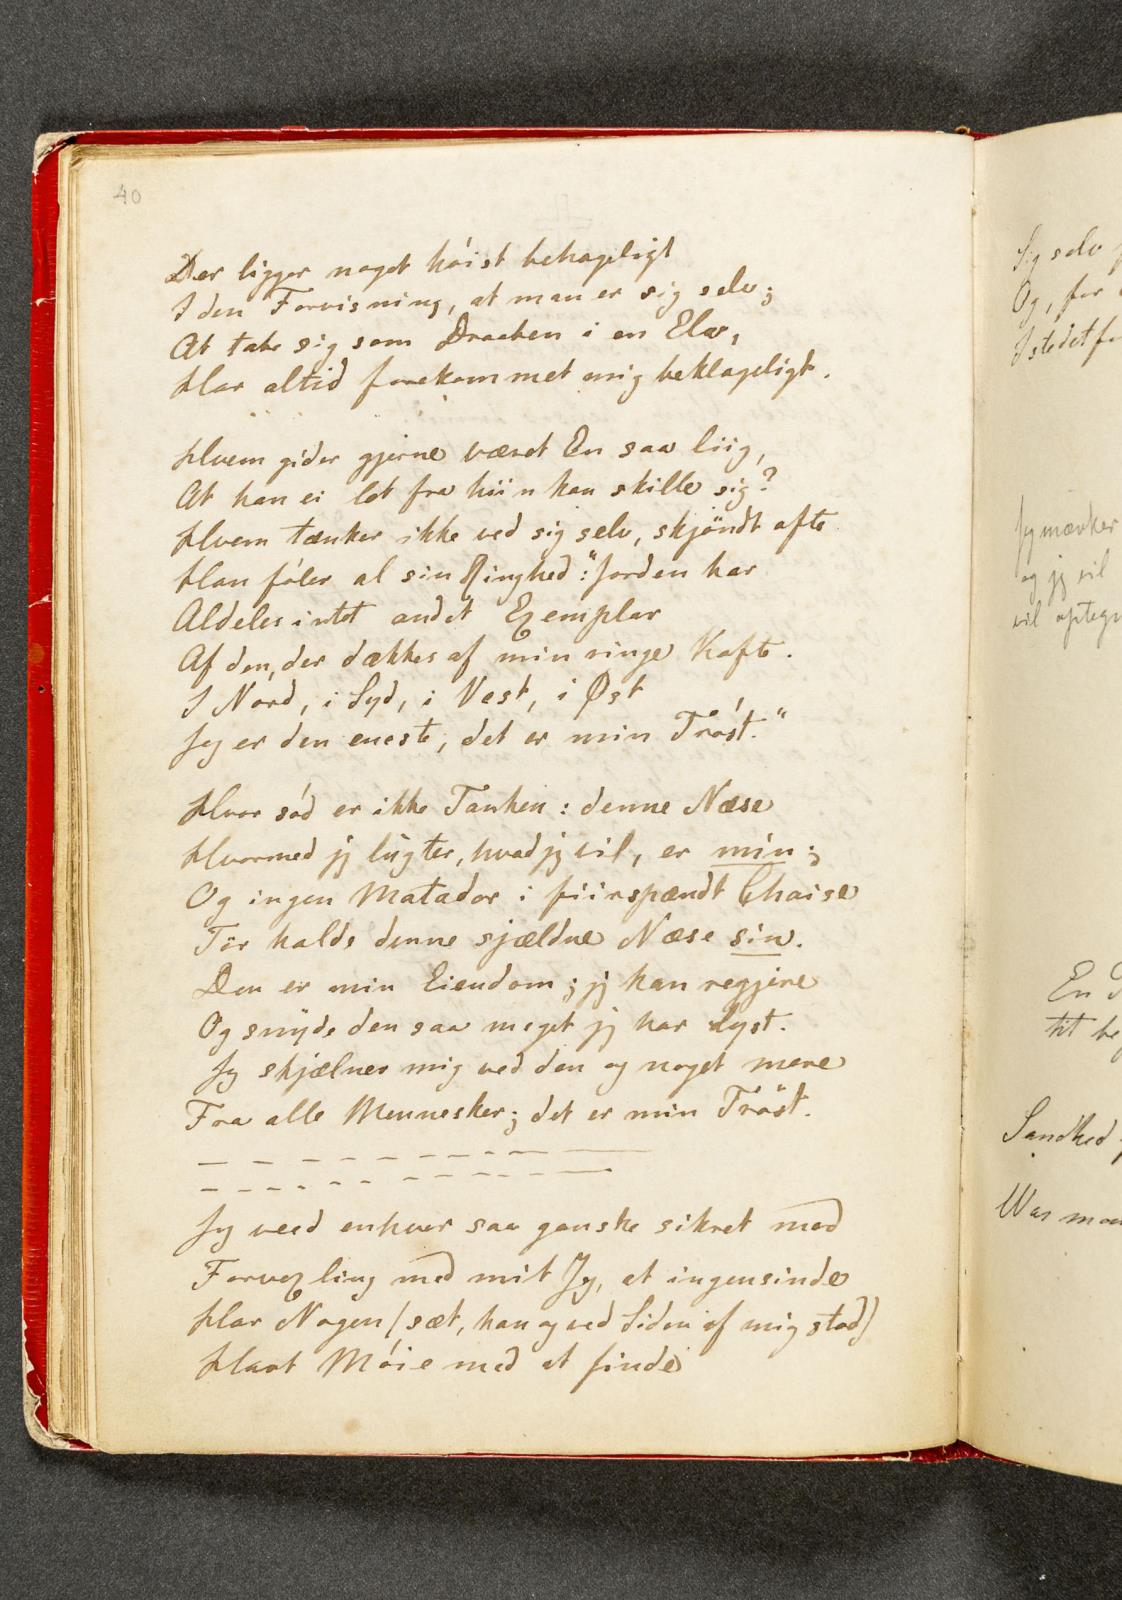 40
Der ligger noget höist behageligt
I den Forvisning, at man er sig selv;
At tabe sig som Draaben i en Elv,
Har altid forekommet mig beklageligt.
Hvem gider gjerne været En saa liig,
At han ei let fra hiin kan skille sig?
Hvem tænker ikke ved sig selv, skjöndt ofte
Han föler al sin Ringhed: "Jorden har
Aldeles intet andet Exemplar
Af den, der dækkes af min ringe Kofte.
I Nord, i Syd, i Vest, i Øst
Jeg er den eneste, det er min Tröst."
Hvor söd er ikke Tanken: denne Næse
Hvormed jeg lugter, hvad jeg vil, er min;
Og ingen Matador i fiirspændt Chaise
Tör kalde denne sjældne Næse sin.
Den er min Eiendom; jeg kan regjere
Og snyde den saa meget jeg har Lyst.
Jeg skjælnes mig ved den og noget mere
Fra alle Mennesker; det er min Tröst.
Jeg veed enhver saa ganske sikret mod
Forvexling med mit Jeg, at ingensinde
Har Nogen (sæt, han og ved Siden af mig stod)
Havt Möie med at finde
Sig selv
Og, for
Istedetfor
Jeg mærker
og jeg vil
vil
En
tit
Sandhed
Was man